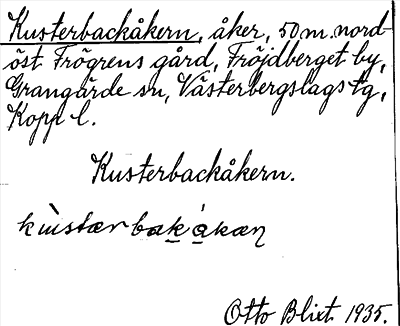 Kusterbackåkern, åker, 50 m. nord-
öst Frögrens gård, Fröjdberget by,
Grangärde sn, Västerbergslags tg,
Kopp l.
Kusterbackåkern.
kùstær bak ákæn
Otto Blixt 1935.